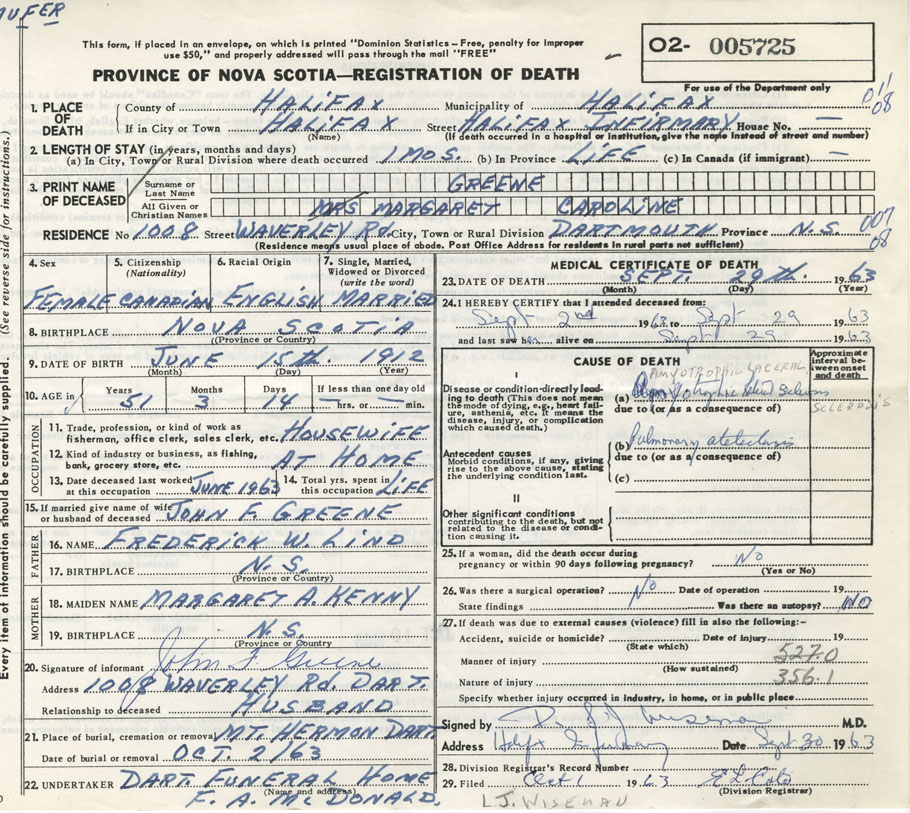 UFER
This form, if placed in an envelope, on which is printed "Dominion Statistics – Free, penalty for improper
use $50," and properly addressed will pass through the mail "FREE"
PROVINCE OF NOVA SCOTIA—REGISTRATION OF DEATH
O2- 005725
For use of the Department only
1. PLACE OF DEATH
County of HALIFAX Municipality of HALIFAX
If in City or Town HALIFAX Street HALIFAX INFIRMARY House No. —
(Name) (If death occurred in a hospital or institution, give the name instead of street and number)
01/08
2. LENGTH OF STAY (in years, months and days)
(a) In City, Town or Rural Division where death occurred 1 MOS. (b) In Province LIFE (c) In Canada (if immigrant) —
3. PRINT NAME OF DECEASED
Surname or Last Name GREENE
All Given or Christian Names MRS MARGARET CAROLINE
RESIDENCE No 1008 Street WAVERLEY Rd. City, Town or Rural Division DARTMOUTH Province N.S.
(Residence means usual place of abode. Post Office Address for residents in rural parts not sufficient)
007
08
Every item of information should be carefully supplied. (See reverse side for instructions.)
4. Sex FEMALE
5. Citizenship (Nationality) CANADIAN
6. Racial Origin ENGLISH
7. Single, Married, Widowed or Divorced (write the word) MARRIED
8. BIRTHPLACE NOVA SCOTIA
(Province or Country)
9. DATE OF BIRTH JUNE 15th. 1912
(Month) (Day) (Year)
10. AGE in Years 51 Months 3 Days 14 If less than one day old — hrs. or — min.
OCCUPATION
11. Trade, profession, or kind of work as
fisherman, office clerk, sales clerk, etc. HOUSEWIFE
12. Kind of industry or business, as fishing,
bank, grocery store, etc. AT HOME
13. Date deceased last worked at this occupation JUNE 1963
14. Total yrs. spent in this occupation LIFE
15. If married give name of wife
or husband of deceased JOHN F. GREENE
FATHER
16. NAME FREDERICK W. LIND
17. BIRTHPLACE N.S.
(Province or Country)
MOTHER
18. MAIDEN NAME MARGARET A. KENNY
19. BIRTHPLACE N.S.
(Province or Country)
20. Signature of informant John F Greene
Address 1008 WAVERLEY Rd. DART.
Relationship to deceased HUSBAND
21. Place of burial, cremation or removal MT. HERMON DART
Date of burial or removal OCT. 2/63
22. UNDERTAKER DART FUNERAL HOME
(Name and address)
F. A. McDONALD.
MEDICAL CERTIFICATE OF DEATH
23. DATE OF DEATH SEPT. 29th. 1963
(Month) (Day) (Year)
24. I HEREBY CERTIFY that I attended deceased from:
Sept 2nd 1963 to Sept 29 1963
and last saw her alive on Sept 29 1963
CAUSE OF DEATH
Approximate interval between onset and death
I
Disease or condition-directly leading
to death (This does not mean
the mode of dying, e.g., heart failure,
asthenia, etc. It means the
disease, injury, or complication
which caused death.)
AMYOTROPHIC LATERAL
SCLEROSIS
(a) Amyotrophic lateral Sclerosis
due to (or as a consequence of)
Antecedent causes
Morbid conditions, if any, giving
rise to the above cause, stating
the underlying condition last.
(b) Pulmonary atelectasis
due to (or as a consequence of)
(c)
II
Other significant conditions
contributing to the death, but not
related to the disease or condition
causing it.
25. If a woman, did the death occur during
pregnancy or within 90 days following pregnancy? No
(Yes or No)
26. Was there a surgical operation? No Date of operation 19
State findings Was there an autopsy? NO
27. If death was due to external causes (violence) fill in also the following:–
Accident, suicide or homicide? Date of injury 19
(State which)
Manner of injury 527.0
(How sustained)
Nature of injury 356.1
Specify whether injury occurred in industry, in home, or in public place
Signed by Wiseman M.D.
Address Halifax Infirmary Date Sept 30 1963
28. Division Registrar's Record Number
29. Filed Oct 1 1963
(Division Registrar)
L.J. WISEMAN